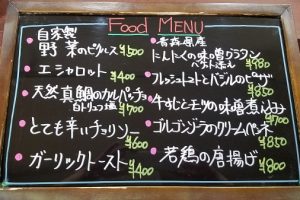 Food MENU
自家製
野菜のピクルス ¥500
・エシャロット ¥400
・天然真鯛のカルパッチョ
白トリュフ塩 ¥700
・とても辛いチョリソー
¥600
・ガーリックトースト ¥400
・青森県産
にんにくの味噌グラタン
バゲット添え ¥980
・フレッシュトマトとバジルのピザ
¥850
・牛すじとモツの味噌煮込み
¥700
・ゴルゴンゾーラのクリームペンネ
¥850
・若鶏の唐揚げ
¥800